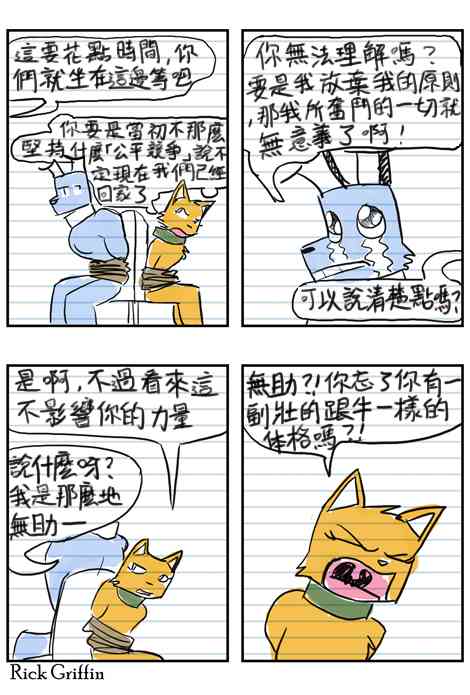 這要花點時間,你
們就坐在這邊等吧
你要是當初不那麼
堅持什麼「公平競爭」,說不
定現在我們已經
回家了
你無法理解嗎?
要是我放棄我的原則
,那我所奮鬥的一切就
無意義了啊!
可以說清楚點嗎?
是啊,不過看來這
不影響你的力量
說什麼呀?
我是那麼地
無助—
無助?!你忘了你有一
副壯的跟牛一樣的
体格嗎?!
Rick Griffin